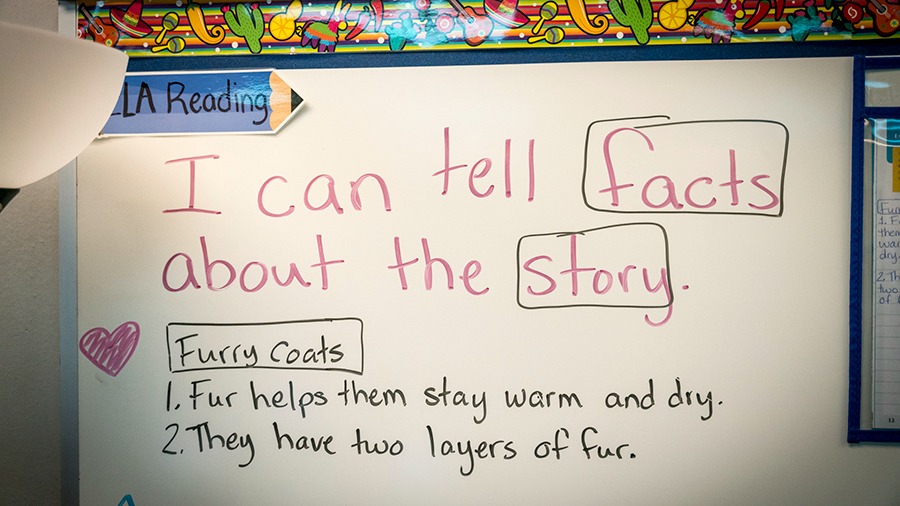 ELA Reading
I can tell facts
about the story.
Furry Coats
1. Fur helps them stay warm and dry.
2. They have two layers of fur.